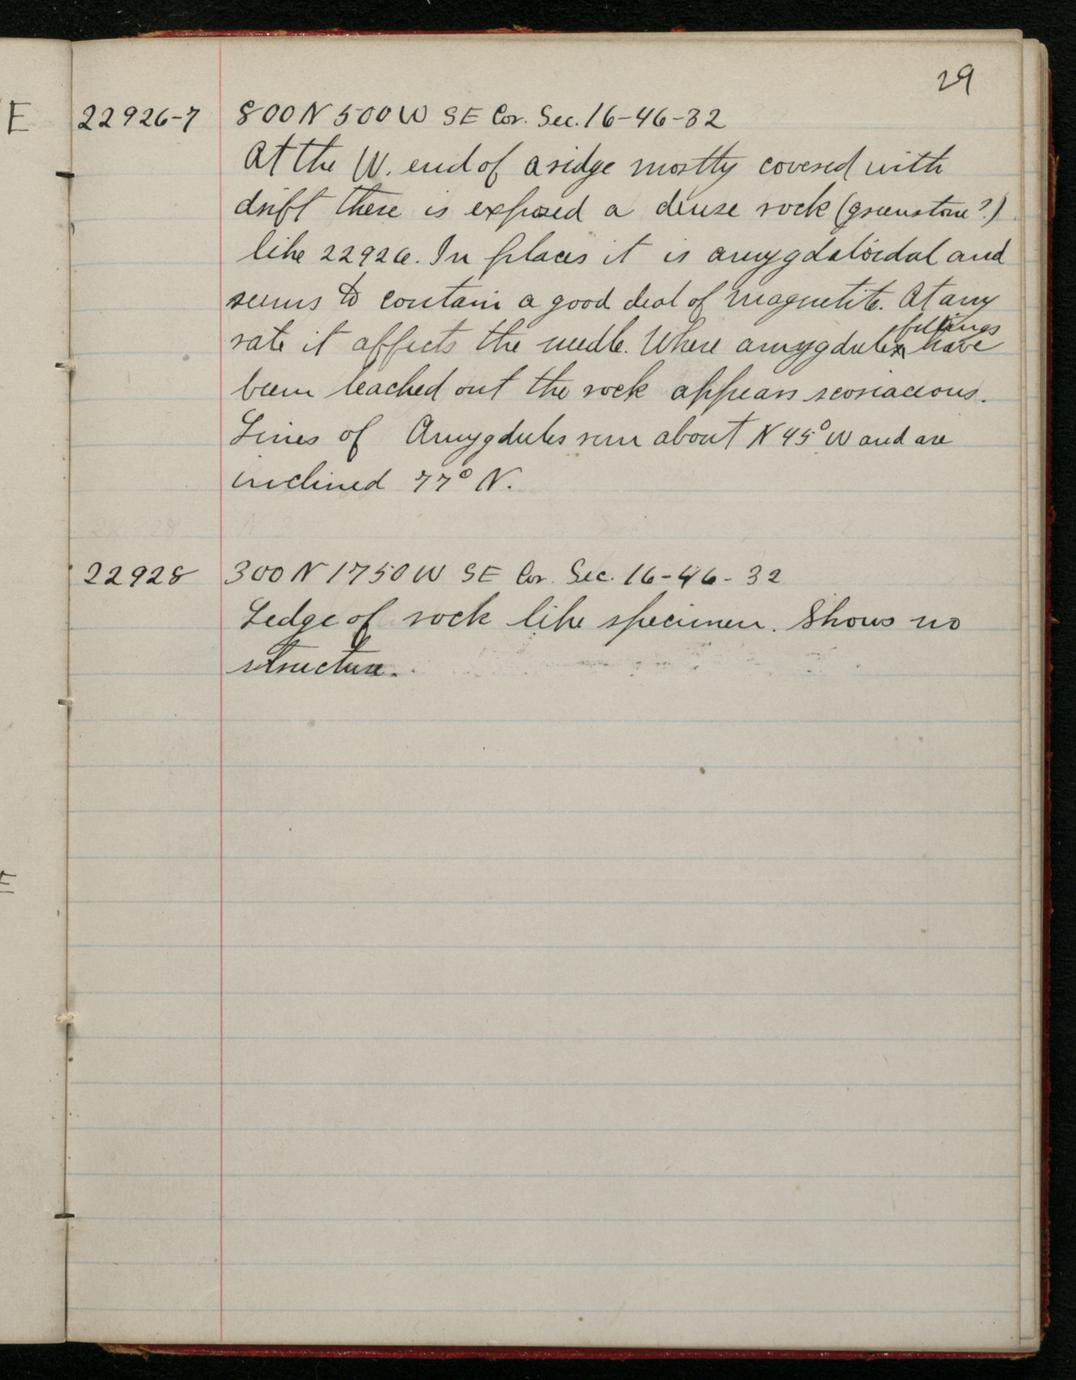 29
E
22926-7 800 N 500 W SE Cor. Sec. 16-46-32
At the W. end of a ridge mostly covered with
drift there is exposed a dense rock (greenstone?)
like 22926. In places it is amygdaloidal and
seems to contain a good deal of magnetite. At any
fillings
rate it affects the needle. Where amygdules have
been leached out the rock appears scoriaceous.
Lines of Amygdules run about N 45° W and are
inclined 77° N.
22928 300 N 1750 W SE Cor. Sec. 16-46-32
Ledge of rock like specimen. Shows no
structure.
E